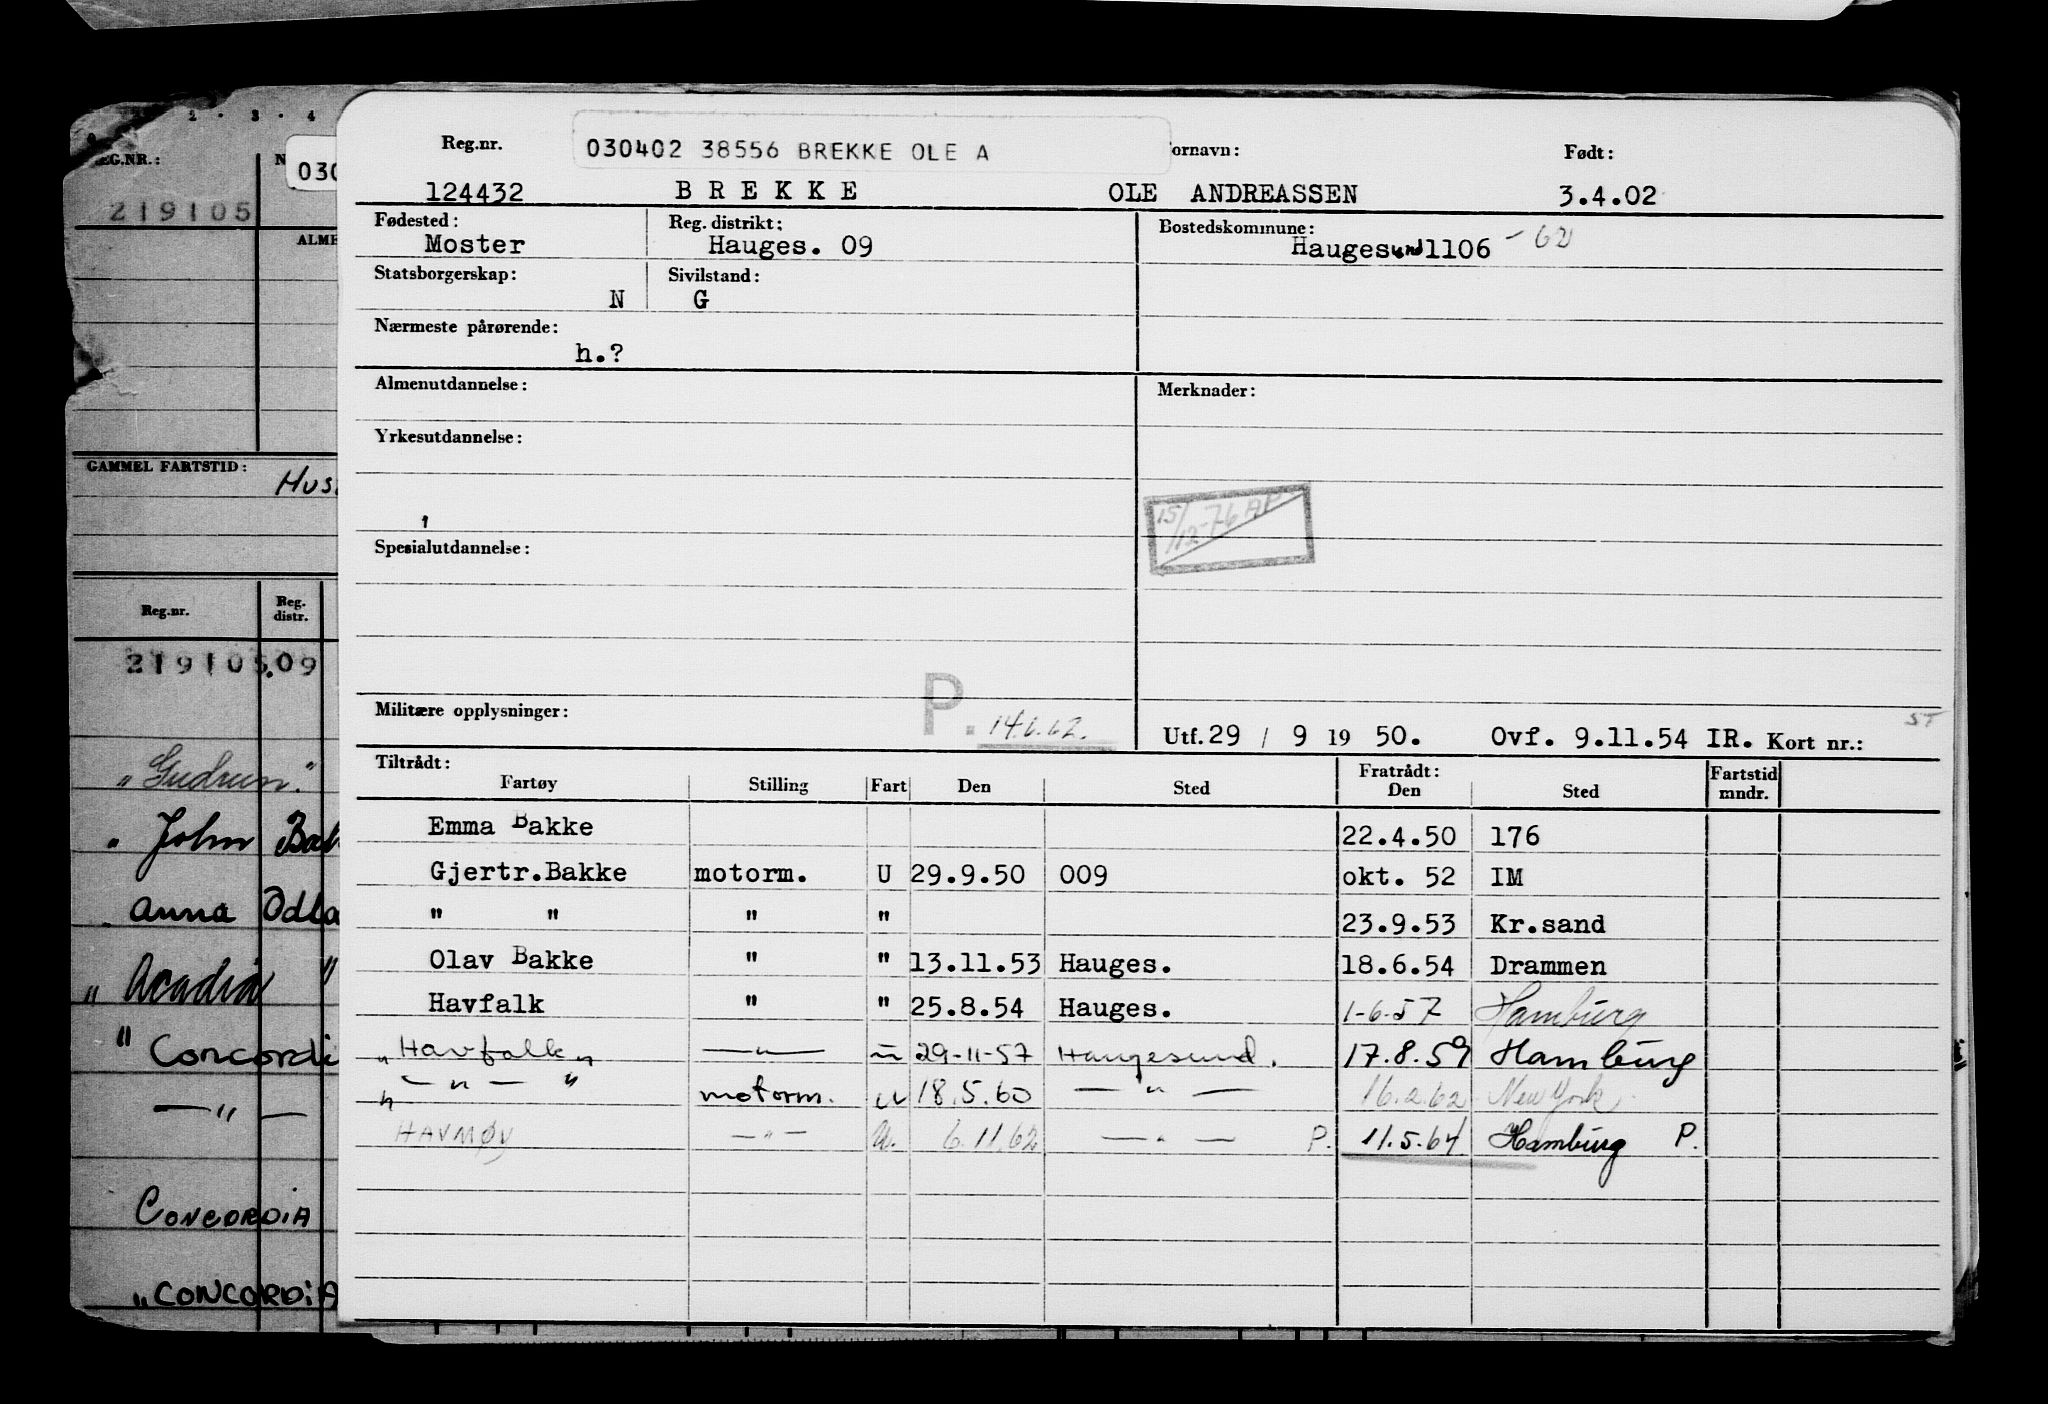 2 . 3 . 4
REG.NR.:
030
219105
ALME
GAMMEL FARTSTID:
Reg.nr.
Reg. distr.
219105.09
"Gudrun."
" John Bak
" Anna Odla
" Acadia "
" Concordi
— " —
CONCORDIA
"CONCORDIA
Reg.nr.
030402 38556 BREKKE OLE A
ornavn:
Født:
124432 BREKKE OLE ANDREASSEN 3.4.02
Fødested: Reg. distrikt: Bostedskommune:
Moster Hauges. 09 Haugesund 1106 - 62
Statsborgerskap: Sivilstand:
N G
Nærmeste pårørende:
h.?
Almenutdannelse: Merknader:
Yrkesutdannelse:
15/12-76 AP
Spesialutdannelse:
Militære opplysninger: P. 14.6.62.
Utf. 29 / 9 19 50. Ovf. 9.11.54 IR. Kort nr.: ST
Tiltrådt: Fratrådt: Fartstid
Fartøy Stilling Fart Den Sted Den Sted mndr.
Emma Bakke 22.4.50 176
Gjertr.Bakke motorm. U 29.9.50 009 okt. 52 IM
" " " " 23.9.53 Kr.sand
Olav Bakke " " 13.11.53 Hauges. 18.6.54 Drammen
Havfalk " " 25.8.54 Hauges. 1-6-57 Hamburg
"Havfalk" —"— " 29-11-57 Haugesund. 17.8.59 Hamburg
" — " — " motorm. U 18.5.60 — " — 16.2.62 New York.
HAVMØY — " — U. 6.11.62 — " — P. 11.5.64 Hamburg P.